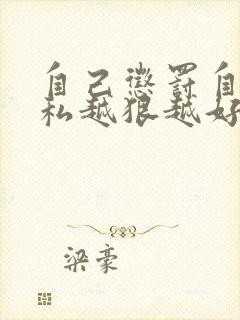 自己惩罚自
私越狠越好
梁豪